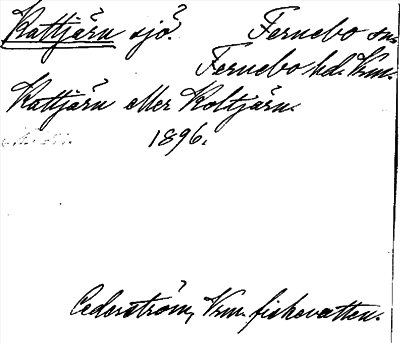 Kattjärn sjö. Fernebo sn.
Fernebo hd. Vrm.
Kattjärn eller Koltjärn.
1896.
Cederström, Vrm. fiskevatten.